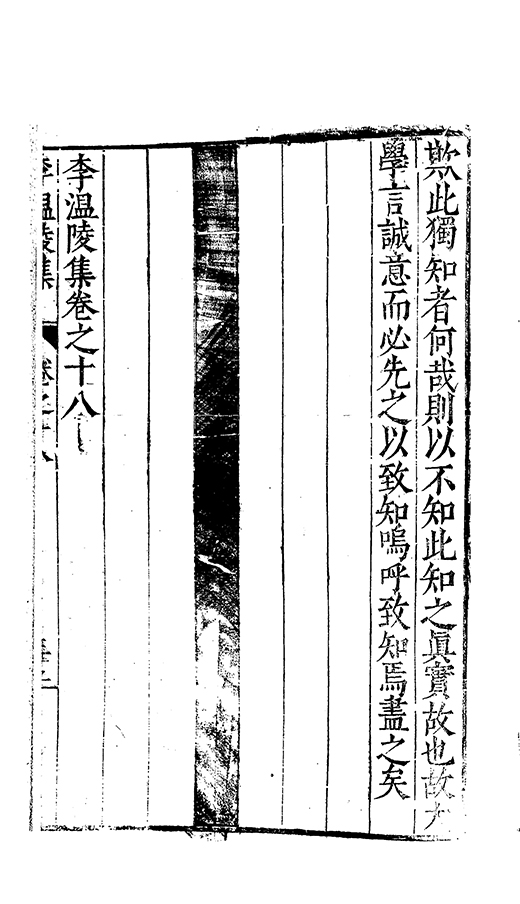 欺此獨知者何哉則以不知此知之眞實故也故大
學言誠意而必先之以致知嗚呼致知焉盡之矣
李温陵集卷之十八
李温陵集 卷之十八